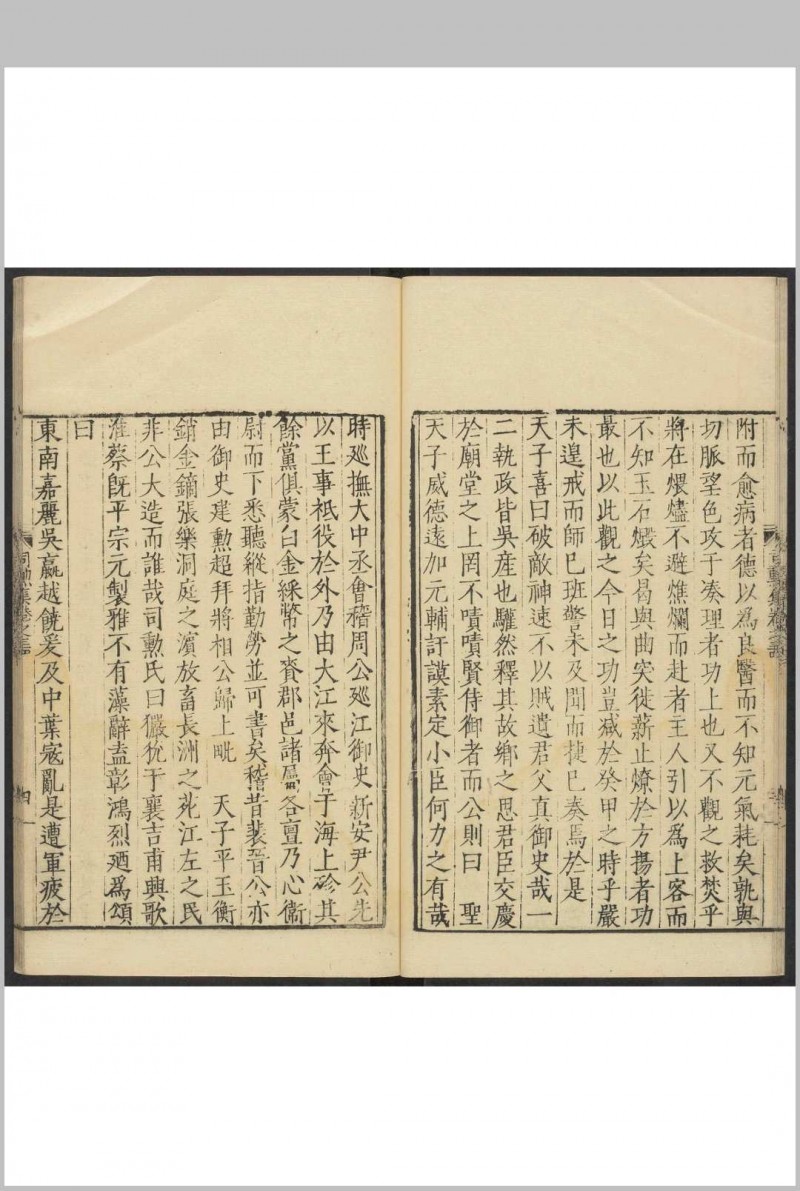 附而愈病者德以為良醫而不知元氣耗矣孰與
切脈望色攻于湊理者功上也又不觀之救焚乎
將在煨燼不避燋爛而赴者主人引以為上客而
不知玉石燬矣曷與曲突徙薪止燎於方揚者功
最也以此觀之今日之功豈減於癸甲之時乎嚴
未遑戒而師已班警未及聞而捷已奏焉於是
天子喜曰破敵神速不以賊遺君父真御史哉一
二執政皆吳產也驩然釋其故鄉之思君臣交慶
於廟堂之上罔不嘖嘖賢侍御者而公則曰　聖
天子威德遠加元輔訏謨素定小臣何力之有哉
時廵撫大中丞會稽周公廵江御史新安尹公先
以王事祗役於外乃由大江來奔會于海上殄其
餘黨俱蒙白金綵幣之賚郡邑諸屬各亶乃心衞
尉而下悉聽縱指勤勞並可書矣稽昔裴晉公亦
由御史建勲超拜將相公歸上毗　天子平玉衡
銷金鏑張樂洞庭之濵放畜長洲之苑江左之民
非公大造而誰哉司勲氏曰玁狁于襄吉甫興歌
淮蔡既平宗元製雅不有藻辭盍彰鴻烈廼為頌
曰
東南嘉麗吳嬴越饒爰及中葉寇亂是遭軍疲於